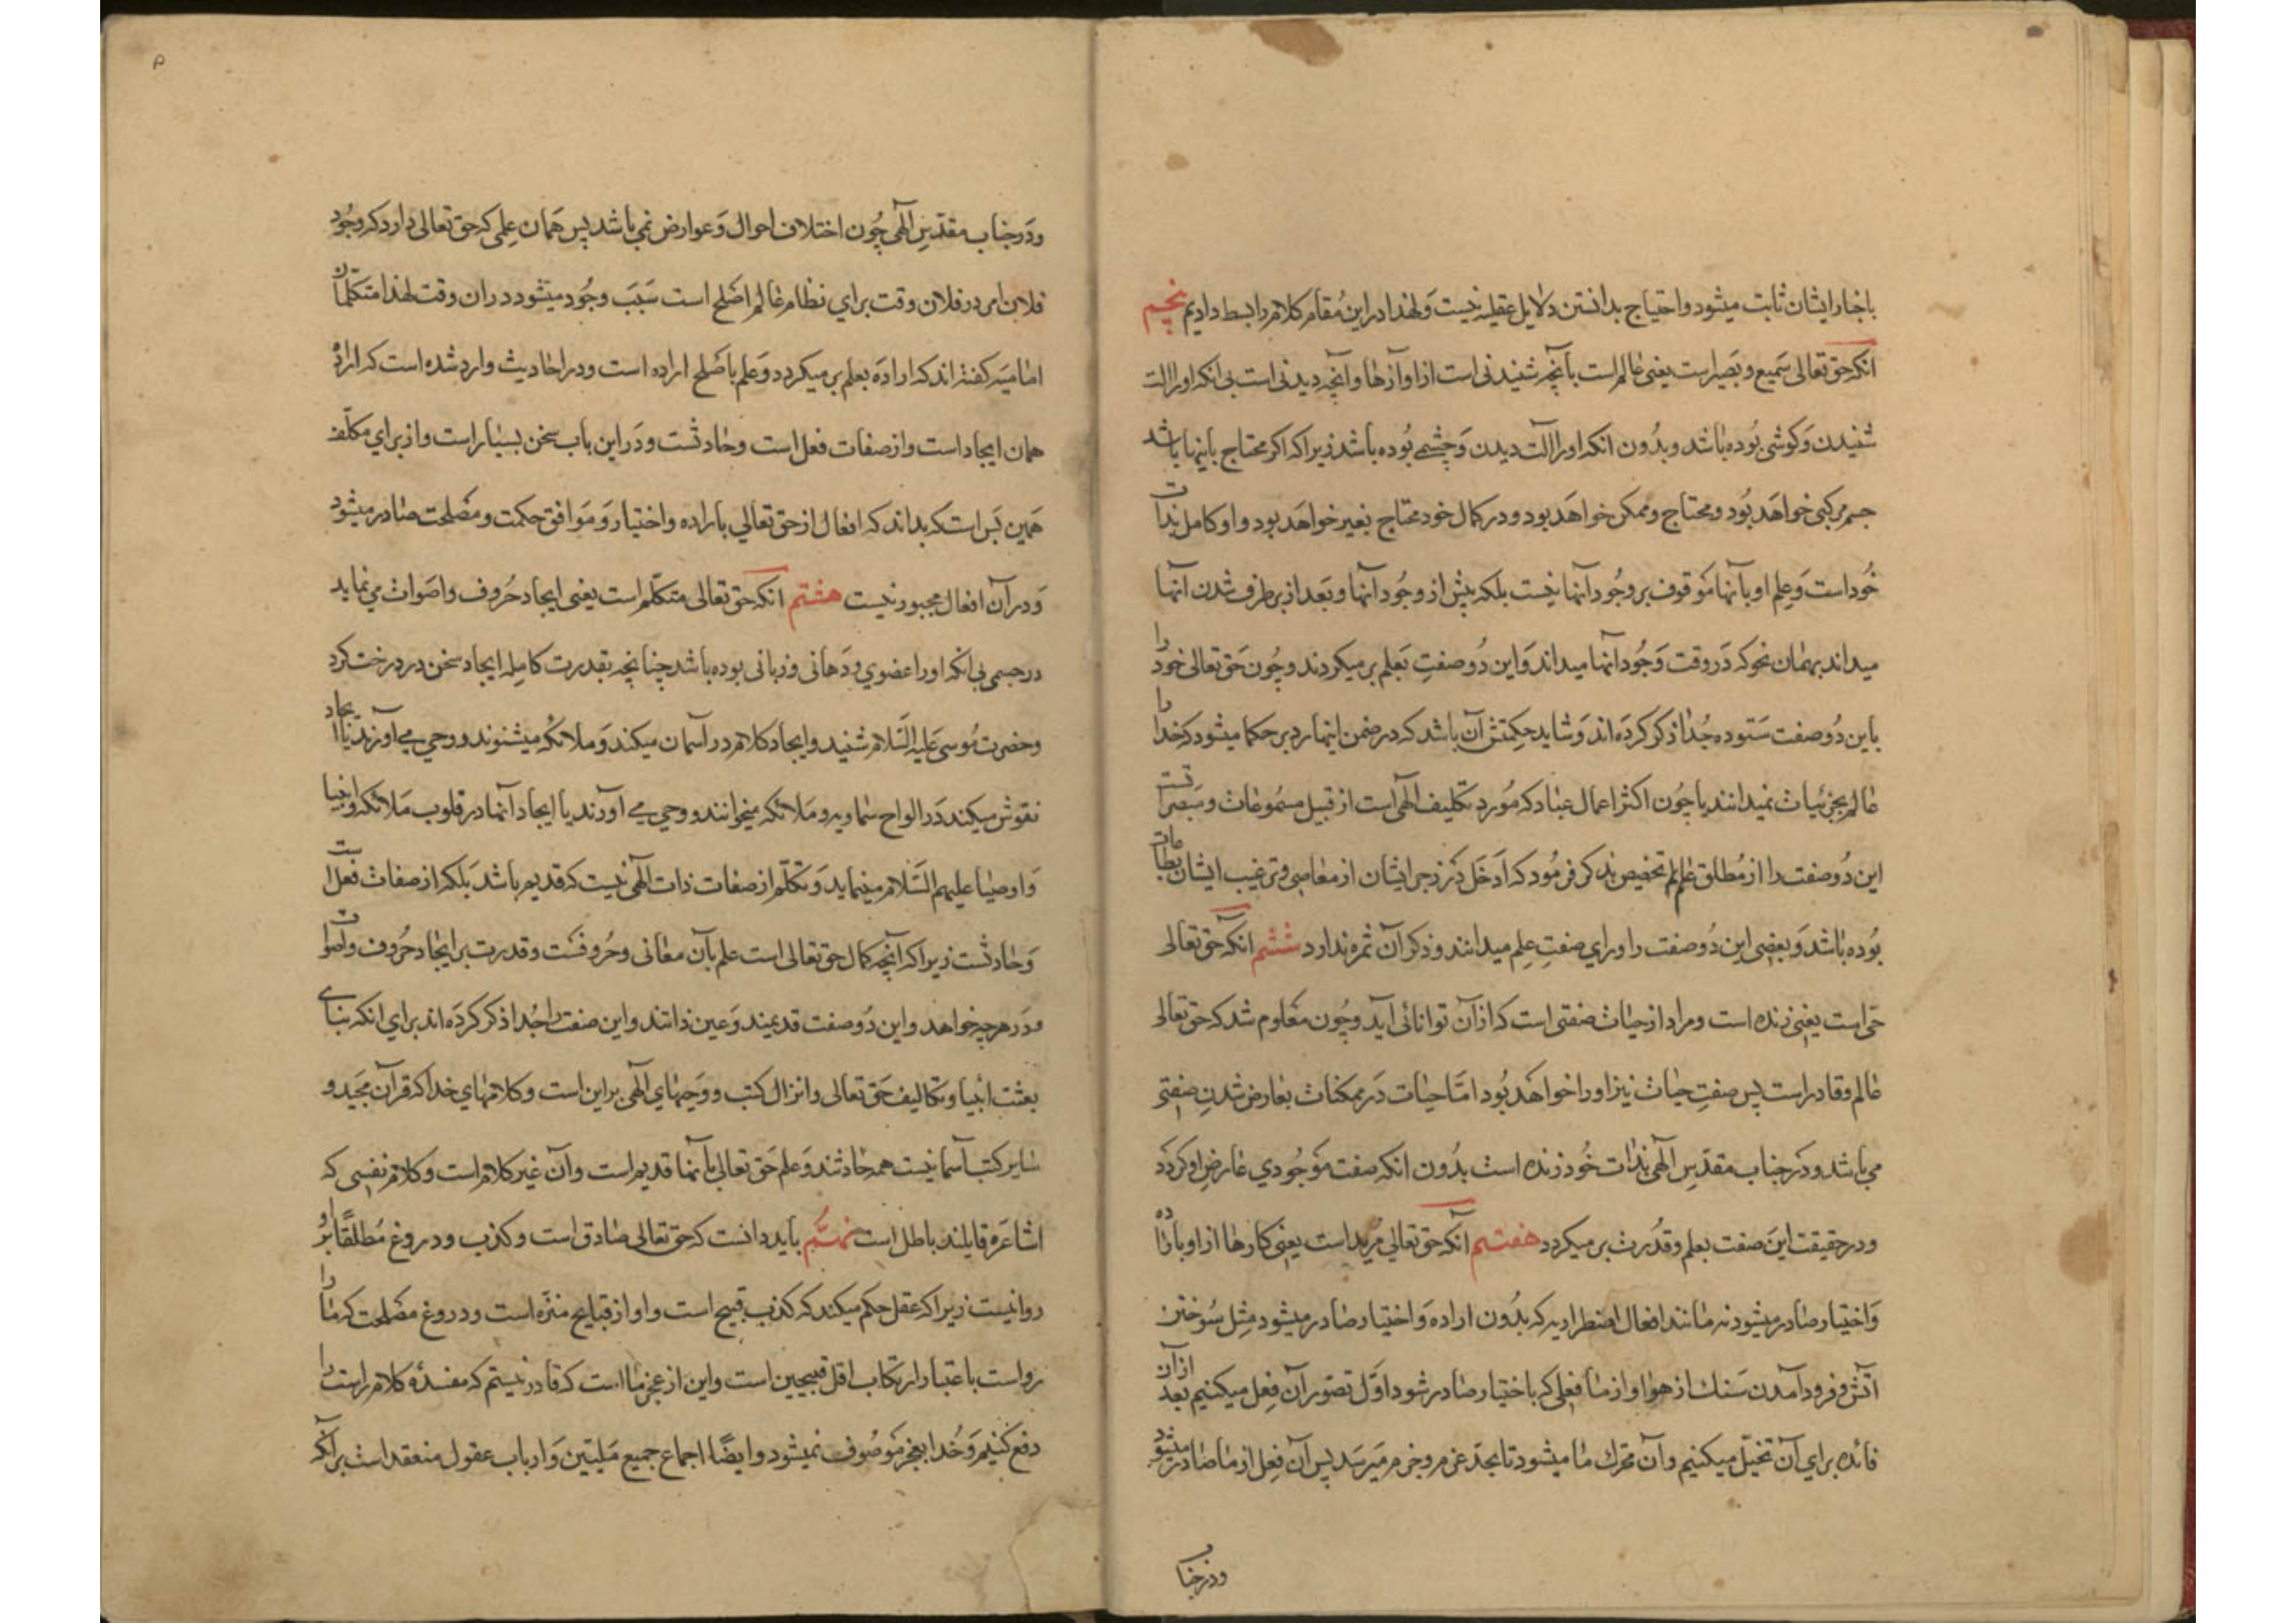 باخبار ایشان ثابت میشود و احتیاج بدانستن دلایل عقلیه نیست و لهذا در این مقام کلام را بسط دادیم پنجم
آنکه حق تعالی سمیع و بصیر است یعنی عالم است بآنچه شنیدنی است از آوازها و آنچه دیدنی است بی آنکه او را آلت
شنیدن و کوشی بوده باشد و بدون آنکه او را آلت دیدن و چشمی بوده باشد زیرا که اکر محتاج باینها باشد
جسم مرکبی خواهد بود و محتاج و ممکن خواهد بود و در کمال خود محتاج بغیر خواهد بود و او کامل بذات
خود است و علم او بآنها موقوف بر وجود آنها نیست بلکه پیش از وجود آنها و بعد از برطرف شدن آنها
میداند بهمان نحو که در وقت وجود آنها میداند و این دو صفت بعلم بر میکردند و چون حق تعالی خود را
باین دو صفت ستوده جدا ذکر کرده اند و شاید حکمتش آن باشد که در ضمن اینها رد بر حکما میشود که خدا را
عالم بجزئیات نمیدانند یا چون اکثر اعمال عباد که مورد تکلیف الهی است از قبیل مسموعات و مبصراتست
این دو صفت را از مطلق علم تخصیص بذکر فرمود که ادخل در زجر ایشان از معاصی و ترغیب ایشان بطاعات
بوده باشد و بعضی این دو صفت را ورای صفت علم میدانند و ذکر آن ثمره ندارد ششم آنکه حق تعالی
حی است یعنی زنده است و مراد از حیات صفتی است که از آن توانائی آید و چون معلوم شد که حق تعالی
عالم و قادر است پس صفت حیات نیز او را خواهد بود اما حیات در ممکنات بعارض شدن صفتی
می باشد و در جناب مقدس الهی بذات خود زنده است بدون آنکه صفت موجودی عارض او کردد
و در حقیقت این صفت بعلم و قدرت بر میکردد هفتم آنکه حق تعالی مرید است یعنی کارها از او باراده
و اختیار صادر میشود نه مانند افعال اضطراریه که بدون اراده و اختیار صادر میشود مثل سوختن
آتش و فرود آمدن سنک از هوا و از ما فعلی که باختیار صادر شود اول تصور آن فعل میکنیم بعد از آن
فائده برای آن تخیل میکنیم و آن محرک ما میشود تا بحد عزم و جزم میرسد پس آن فعل از ما صادر میشود
و در جناب
و در جناب مقدس الهی چون اختلاف احوال و عوارض نمی باشد پس همان علمی که حق تعالی دارد که وجود
فلان امر در فلان وقت برای نظام عالم اصلح است سبب وجود میشود در آن وقت لهذا متکلمان
امامیه کفته اند که اراده بعلم بر میکردد و علم باصلح اراده است و در احادیث وارد شده است که اراده
همان ایجاد است و از صفات فعل است و حادثست و در این باب سخن بسیار است و از برای مکلف
همین بس است که بداند که افعال از حق تعالی باراده و اختیار و موافق حکمت و مصلحت صادر میشود
و در آن افعال مجبور نیست هشتم آنکه حق تعالی متکلم است یعنی ایجاد حروف و اصوات می نماید
در جسمی بی آنکه او را عضوی و دهانی و زبانی بوده باشد چنانچه بقدرت کامله ایجاد سخن در درخت کرد
و حضرت موسی علیه السلام شنید و ایجاد کلام در آسمان میکند و ملائکه میشنوند و وحی می آورند یا ایجاد
نقوش میکند در الواح سماویه و ملائکه میخوانند و وحی می آورند یا ایجاد آنها در قلوب ملائکه و انبیا
و اوصیا علیهم السلام مینماید و تکلم از صفات ذات الهی نیست که قدیم باشد بلکه از صفات فعلست
و حادثست زیرا که آنچه کمال حق تعالی است علم بآن معانی و حروفست و قدرت بر ایجاد حروف و اصوات
و در هر چیز خواهد و این دو صفت قدیمند و عین ذاتند و این صفت را جدا ذکر کرده اند برای آنکه بنای
بعثت انبیا و تکالیف حق تعالی و انزال کتب و وحیهای الهی بر این است و کلامهای خدا که قرآن مجید و
سایر کتب آسمانیست همه حادثند و علم حق تعالی بآنها قدیم است و آن غیر کلام است و کلام نفسی که
اشاعره قایلند باطل است نهم باید دانست که حق تعالی صادق است و کذب و دروغ مطلقا بر او
روا نیست زیرا که عقل حکم میکند که کذب قبیح است و او از قبایح منزه است و دروغ مصلحت که ما را
رواست باعتبار ارتکاب اقل قبیحین است و این از عجز ما است که قادر نیستیم که مفسدهٔ کلام راست را
دفع کنیم و خدا بعجز موصوف نمیشود و ایضا اجماع جمیع ملیین و ارباب عقول منعقد است بر آنکه